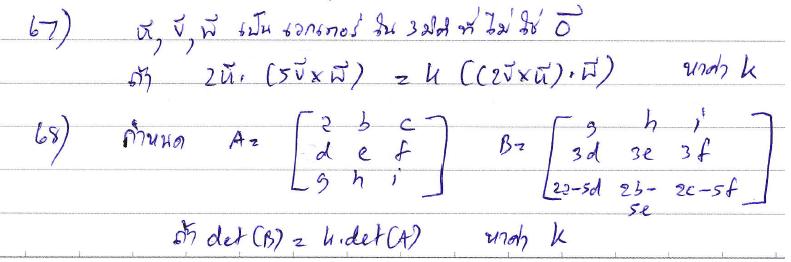 67) ū, v̄, w̄ เป็นเวกเตอร์ ใน 3 มิติ ที่ไม่ใช่ 0̄
ถ้า 2ū · (5v̄ × w̄) = k ((2v̄ × ū) · w̄) หาค่า k
68) กำหนด A = [ a b c B = [ g h i
d e f 3d 3e 3f
g h i ] 2a-5d 2b-5e 2c-5f ]
ถ้า det(B) = k.det(A) หาค่า k